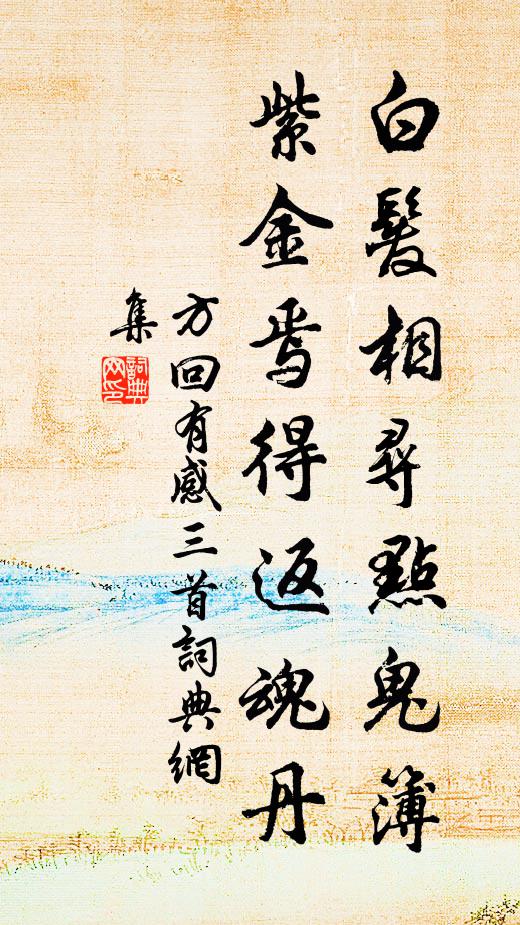 白髮相尋點鬼簿
紫金焉得返魂丹
方回有感三首詞典網
集
詞典
网印